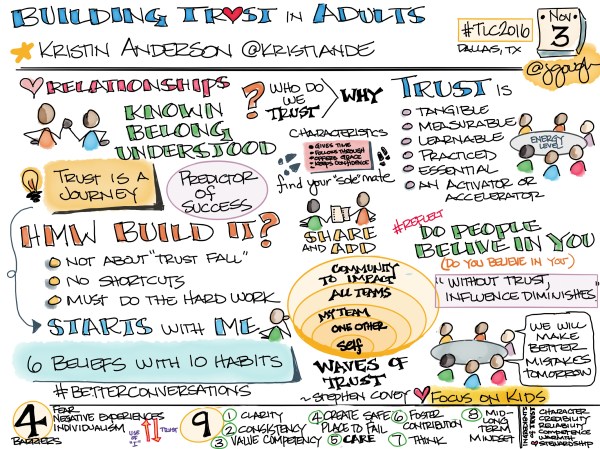 BUILDING TRUST IN ADULTS
KRISTIN ANDERSON @KRISTIANDE
#TLC2016
DALLAS, TX
NOV
3
@jgough
RELATIONSHIPS
KNOWN
BELONG
UNDERSTOOD
? WHO DO
WE
TRUST
WHY
CHARACTERISTICS
GIVES TIME
FOLLOWS THROUGH
OFFERS GRACE
KEEPS CONFIDENCE
find your "sole" mate
TRUST IS
TANGIBLE
MEASURABLE
LEARNABLE
PRACTICED
ESSENTIAL
AN ACTIVATOR OR
ACCELERATOR
ENERGY
LEVEL
TRUST IS A
JOURNEY
PREDICTOR
OF
SUCCESS
HMW BUILD IT?
NOT ABOUT "TRUST FALL"
NO SHORTCUTS
MUST DO THE HARD WORK
STARTS WITH ME
6 BELIEFS WITH 10 HABITS
#BETTERCONVERSATIONS
SHARE
AND ADD
COMMUNITY
TO IMPACT
ALL TEAMS
MY TEAM
ONE OTHER
Self
WAVES OF
TRUST
~ STEPHEN COVEY
#REFLECT
DO PEOPLE
BELIVE IN YOU
(DO YOU BELIEVE IN YOU)
"WITHOUT TRUST,
INFLUENCE DIMINISHES"
WE WILL
MAKE
BETTER
MISTAKES
TOMORROW
FOCUS ON KIDS
4
BARRIERS
FEAR
NEGATIVE EXPERIENCES
INDIVIDUALISM
USE
OF
"I"
TRUST
9
1 CLARITY
2 CONSISTENCY
3 VALUE COMPETENCY
4 CREATE SAFE
PLACE TO FAIL
5 CARE
6 FOSTER
CONTRIBUTION
7 THINK
8 MID-
LONG
TERM
MINDSET
INGREDIENTS
OF TRUST
CHARACTER
CREDIBILITY
RELIABILITY
COMPETENCE
WARMTH
STEWARDSHIP